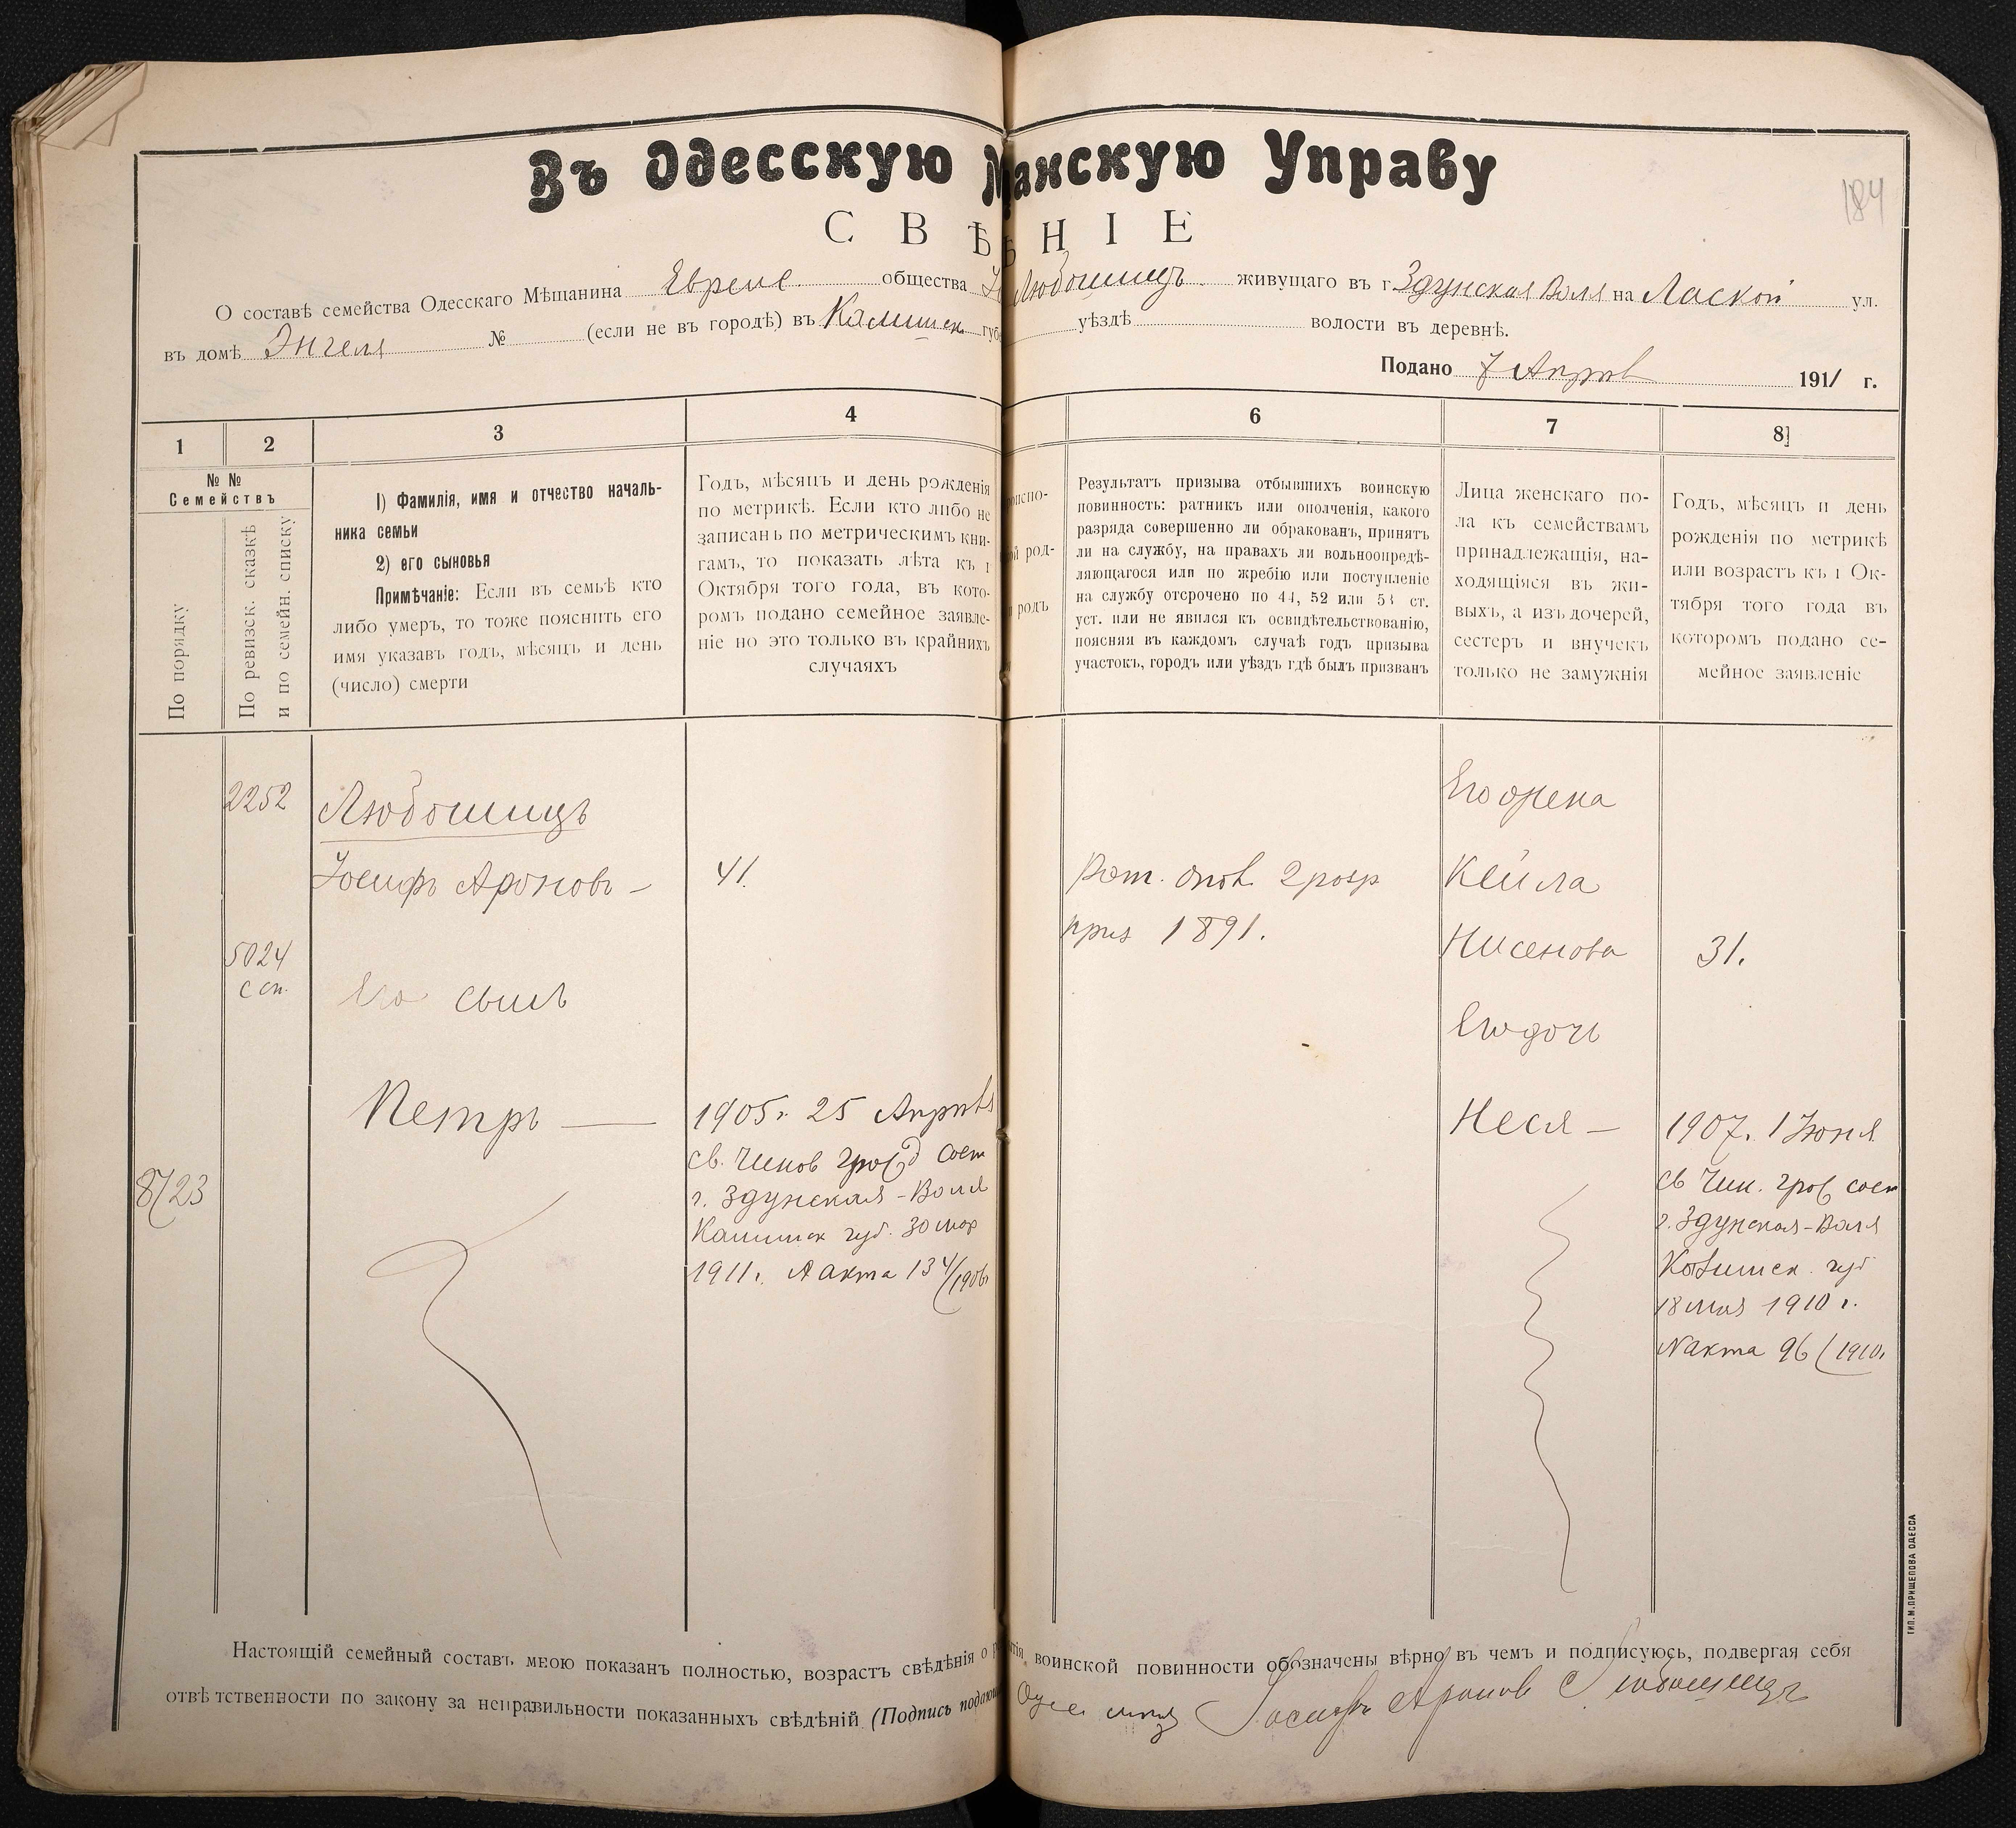 Въ Одесскую М анскую Управу
184
С В Ѣ Н І Е
О составѣ семейства Одесскаго Мѣщанина Евреис. общества Любошицъ живущаго въ г. Здунская Воля на Лаской ул.
въ домѣ Энгеля № (если не въ городѣ) въ Калишск губ уѣздѣ волости въ деревнѣ.
Подано 7 Апрѣл 1911 г.
1 2 3 4 6 7 8]
№ №
Семействъ
По порядку
По ревизск. сказкѣ
и по семейн. списку
1) Фамилія, имя и отчество началь-
ника семьи
2) его сыновья
Примѣчаніе: Если въ семьѣ кто
либо умеръ, то тоже пояснить его
имя указавъ годъ, мѣсяцъ и день
(число) смерти
Годъ, мѣсяцъ и день рожденія
по метрикѣ. Если кто либо не
записанъ по метрическимъ кни-
гамъ, то показать лѣта къ 1
Октября того года, въ кото-
ромъ подано семейное заявле-
ніе но это только въ крайнихъ
случаяхъ
оиспо-
ой род-
и родъ
Результатъ призыва отбывшихъ воинскую
повинность: ратникъ или ополченія, какого
разряда совершенно ли обракованъ, принятъ
ли на службу, на правахъ ли вольноопредѣ-
ляющагося или по жребію или поступленіе
на службу отсрочено по 44, 52 или 53 ст.
уст. или не явился къ освидѣтельствованію,
поясняя въ каждомъ случаѣ годъ призыва
участокъ, городъ или уѣздъ гдѣ былъ призванъ
Лица женскаго по-
ла къ семействамъ
принадлежащія, на-
ходящіяся въ жи-
выхъ, а изъ дочерей,
сестеръ и внучекъ
только не замужнія
Годъ, мѣсяцъ и день
рожденія по метрикѣ
или возрастъ къ 1 Ок-
тября того года въ
которомъ подано се-
мейное заявленіе
2252
Любошицъ
Іосифъ Ароновъ —
41.
Рат. опол. 2 разр
приз 1891.
Его жена
Кейла
Нисенова
31.
5024
с сп.
Его сынъ
Его дочь
Петръ —
1905 г. 25 Апрѣля
св. Чинов граж д сост
г. Здунская-Воля
Калишск губ. 30 мар
1911 г. № акта 134/1906
Неся —
1907 г. 1 Іюня
св Чин. граж сост
г. Здунская-Воля
Калишск. губ
18 мая 1910 г.
№ акта 96 (1910 г.
8/23
Настоящій семейный составъ мною показанъ полностью, возрастъ свѣдѣнія о воинской повинности обозначены вѣрно въ чемъ и подписуюсь, подвергая себя
отвѣтственности по закону за неправильности показанныхъ свѣдѣній. (Подпись подаю Іосифъ Аронов Любошицъ
ТИП. М. ПРИЩЕПОВА ОДЕССА